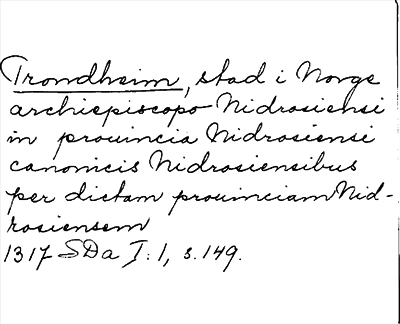 Trondheim, stad i Norge
archiepiscopo Nidrosiensi
in prouincia Nidrosiensi
canonicis Nidrosiensibus
per dictam prouinciam Nid-
rosiensem
1317 SDa I:1, s.149.